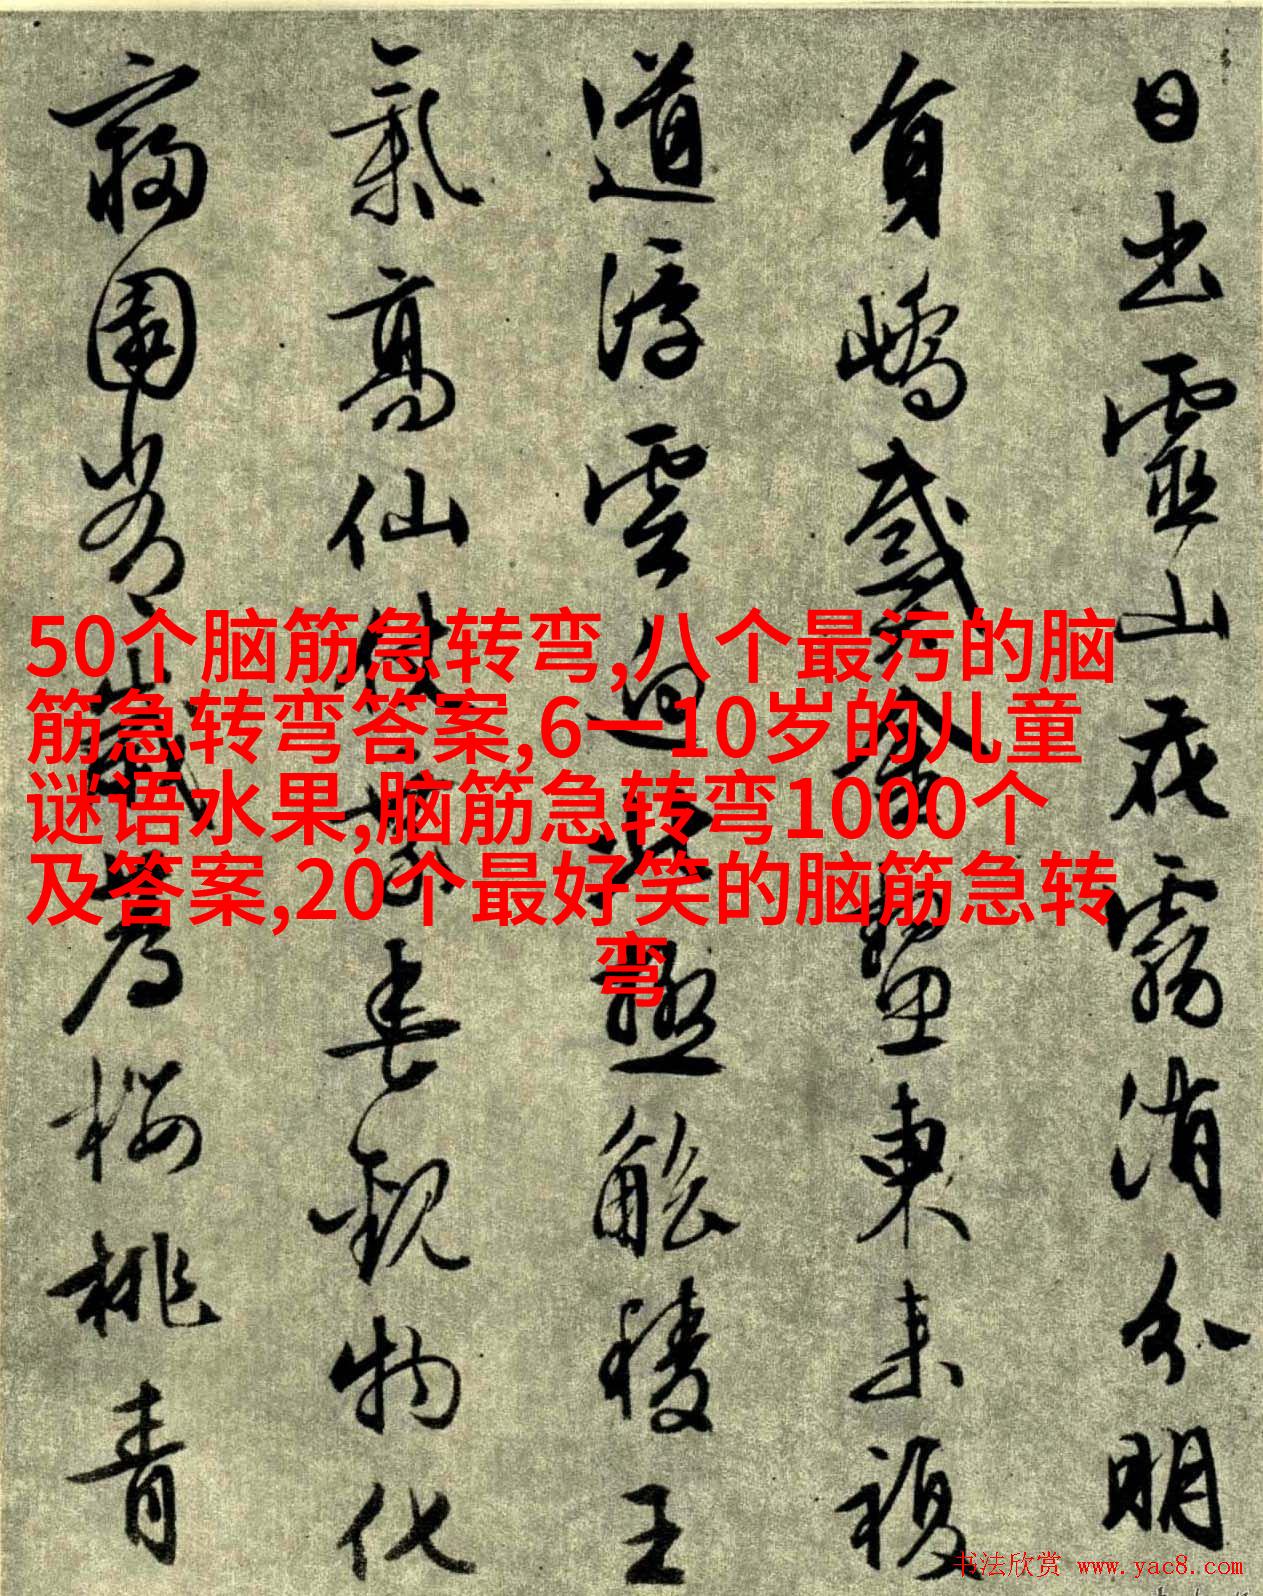 日出靈山花霧消分明
員嶠戴金鼇東来複
道浮雲迥極觚稜王
氣高仙春觀物化
櫻桃青
50个脑筋急转弯,八个最污的脑
筋急转弯答案,6一10岁的儿童
谜语水果,脑筋急转弯1000个
及答案,20个最好笑的脑筋急转
弯
书法欣赏 www.yac8.com